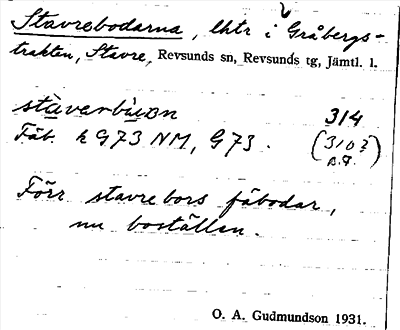 Stavrebodarna, lhtr i Gråbergs-
trakten, Stavre, Revsunds sn, Revsunds tg, Jämtl. l.
stavarbuᴅn 314
Fäb. k G73 NM, G73. (310?)
Förr stavrebors fäbodar,
nu boställen.
O. A. Gudmundson 1931.